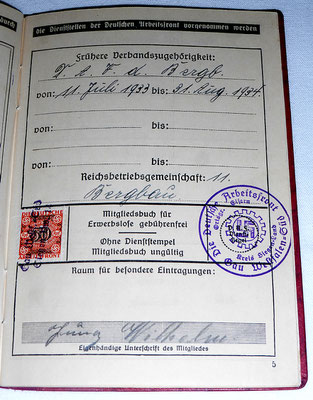 die Dienststellen der Deutschen Arbeitsfront vorgenommen werden
Frühere Verbandszugehörigkeit:
d. Bergb.
von: 11. Juli 1933 bis: 31. Aug. 1934
von: bis:
von: bis:
Reichsbetriebsgemeinschaft: 11.
Bergbau
Mitgliedsbuch für
Erwerbslose gebührenfrei
Ohne Dienststempel
Mitgliedsbuch ungültig
Die Deutsche Arbeitsfront
Gau Westfalen-Süd
Kreis
Raum für besondere Eintragungen:
Jung Wilhelm
Eigenhändige Unterschrift des Mitgliedes
5